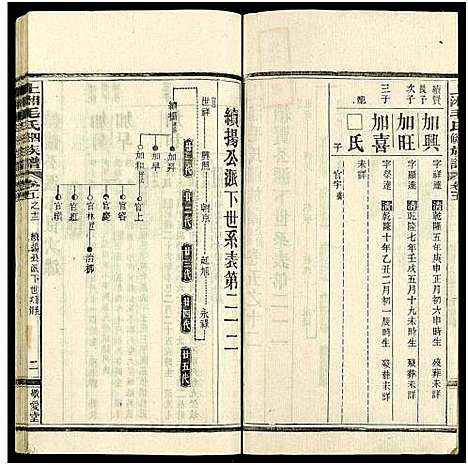 上湘毛氏續族譜 卷五
續賢長子
加興
字祥達 清乾隆五年庚申正月初六申時生 歿葬未詳
次子
加旺
字顯達 清乾隆七年壬戌五月十九未時生 歿葬未詳
三子
加喜
字榮達 清乾隆十年乙丑二月初一辰時生 歿葬未詳
配
□氏
未詳
子
官宇
續揚公派下世系表第二一二
世祥
興照
朝京
廷旭
永祿
續揚
加昇
加祥
加早
官上
官容
官慶
官林
治挪
官紅
官橫
廿一代
廿二代
廿三代
廿四代
廿五代
上湘毛氏四族譜
卷五之十二
續揚公派下世
敬愛堂